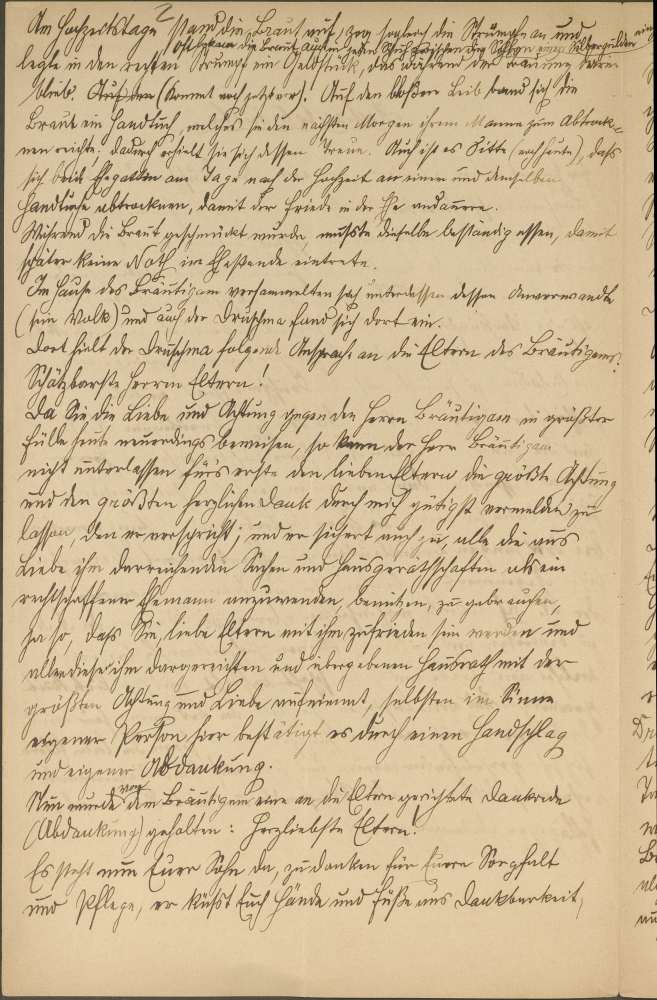 2
Am Hochzeitstage stand die Braut auf, zog sogleich die Strümpfe an und
Oft bekam die Braut auch in jeden Schuh zwischen die Sohlen einen Silbergulden
legte in den rechten Strumpf ein Geldstück, das während der Trauung darin
blieb. Auf den (kommt noch jetzt vor)! Auf den bloßen Leib band sich die
Braut ein Handtuch, welches sie den nächsten Morgen ihrem Manne zum Abtrock=
nen reichte. Dadurch erhielt sie sich dessen Treue. Auch ist es Sitte (noch heute), daß
sich beide Ehegatten am Tage nach der Hochzeit an einem und demselben
Handtuche abtrocknen, damit der Friede in der Ehe andauere.
Während die Braut geschmückt wurde, mußte dieselbe beständig essen, damit
später keine Noth im Ehestande eintrete.
Im Hause des Bräutigam versammelten sich unterdessen dessen Anverwandte
(sein Volk) und auch der Druschma fand sich dort ein.
Dort hielt der Druschma folgende Ansprache an die Eltern des Bräutigams:
Schätzbarste Herren Eltern!
Da Sie die Liebe und Achtung gegen den Herrn Bräutigam in größter
Fülle heute neuerdings beweisen, so kann der Herr Bräutigam
nicht unterlassen für's erste den lieben Eltern die größte Achtung
und den größten herzlichen Dank durch mich gütigst vermelden zu
lassen, den er verspricht; und er sichert auch zu, alle die aus
Liebe ihm darreichenden Sachen und Hausgeräthschaften als ein
rechtschaffener Ehemann anzuwenden, benützen, zu gebrauchen,
ja so, daß Sie, liebe Eltern mit ihm zufrieden sein werden und
alle diese ihm dargereichten und übergebenen Hausrath mit der
größten Achtung und Liebe aufnimmt, selbsten im Sinne
eigener Person hier bestätigt es durch einen Handschlag
und eigener Abdankung.
Nun wurde von dem Bräutigam eine an die Eltern gerichtete Dankrede
(Abdankung) gehalten: Herzliebste Eltern!
Es steht nun Euer Sohn da, zu danken für Euere Sorgfalt
und Pflege, er küßt Euch Hände und Füße aus Dankbarkeit,